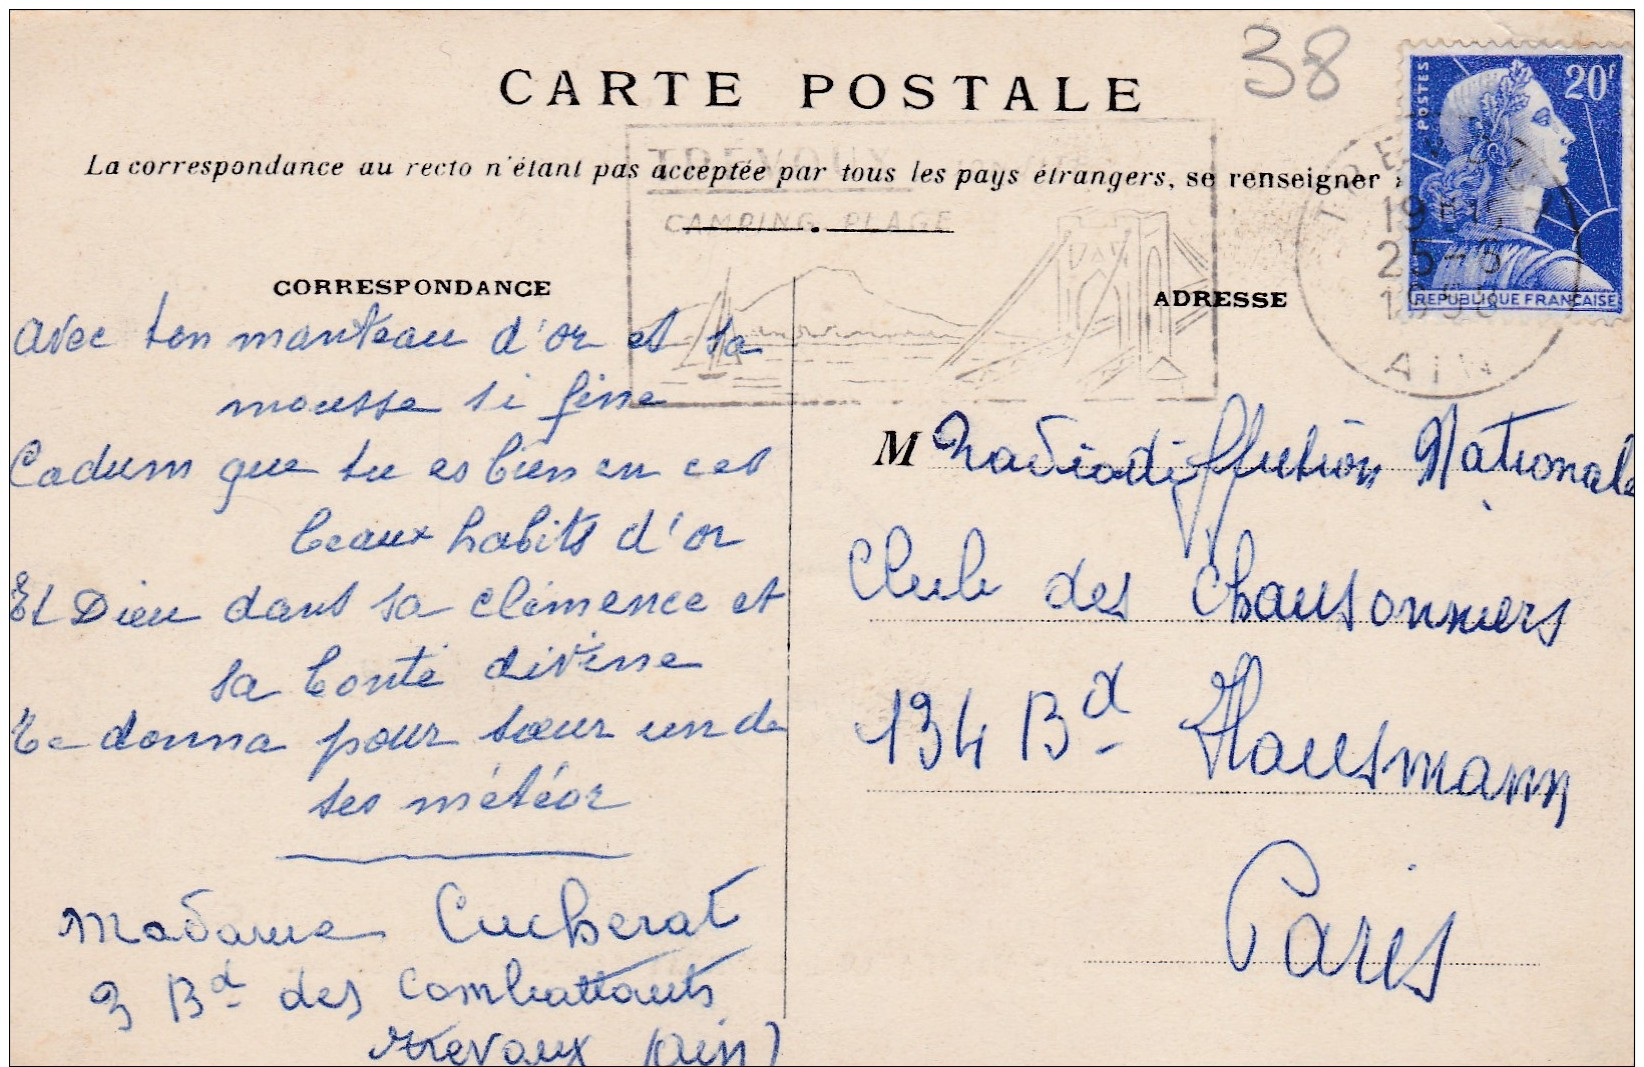 38
CARTE POSTALE
20F
POSTES
La correspondance au recto n'étant pas acceptée par tous les pays étrangers, se renseigner
TREVOUX
CAMPING PLAGE
TREVOUX
19H15
25-
AIN
REPUBLIQUE FRANCAISE
CORRESPONDANCE
avec ton manteau d'or et ta
mousse si fine
Cadum que tu es bien en ces
beaux habits d'or
Et Dieu dans sa clémence et
sa bonté divine
Te donna pour sœur un de
ses météor
Madame Cucherat
3 Bd des Combattants
Trevoux (Ain)
ADRESSE
M Radiodiffution Nationale
Club des Chansonniers
134 Bd Hausmann
Paris